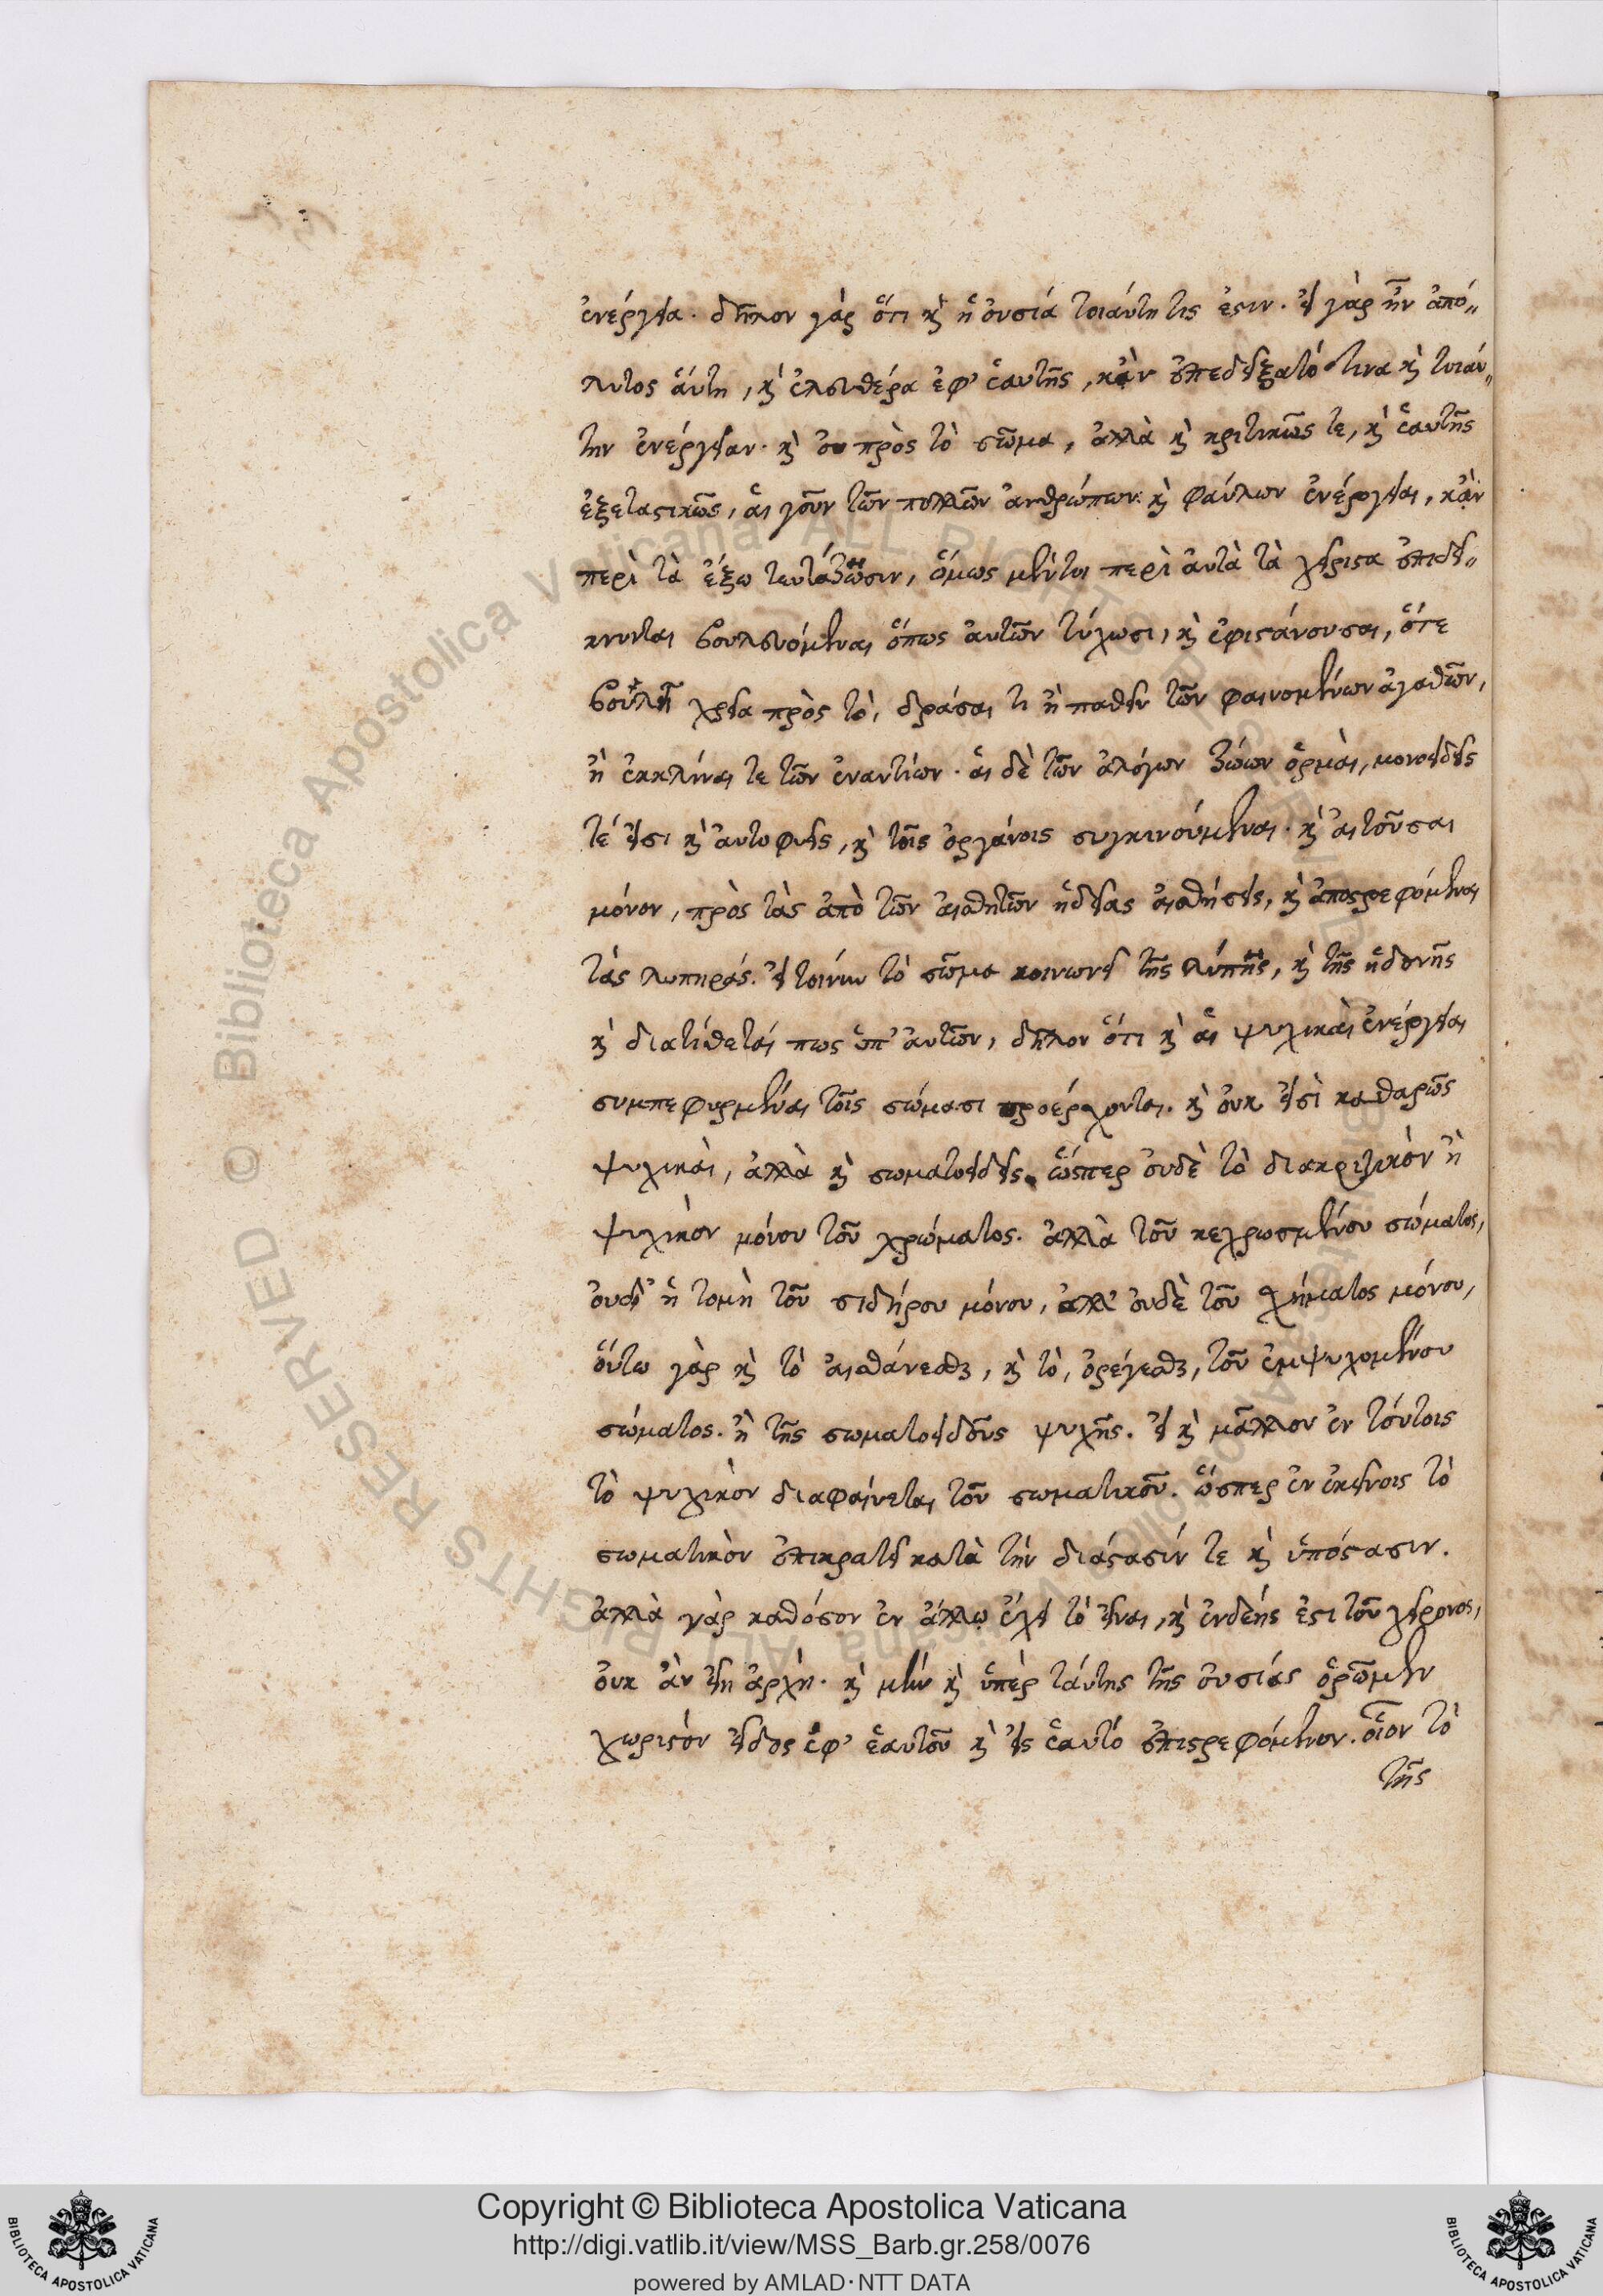 ἐνέργεια. δῆλον γὰρ ὅτι κ̀ ἡ οὐσία τοιαύτη τις ἐστιν. εἰ γὰρ ἦν ἀπό„
λυτος ἅυτη, κ̀ ἐλευθέρα ἐφ' ἑαυτῆς, κἂν ἐπεδείξατό τινα κ̀ τοιάυ„
την ἐνέργειαν. κ̀ ὀυ πρὸς τὸ σῶμα, ἀλλὰ κ̀ κριτικῶς τε, κ̀ ἑαυτῆς
ἐξεταστικῶς, ἁι γοῦν τῶν πολλῶν ἀνθρώπων κ̀ φαύλων ἐνέργειαι, κἂν
περὶ τὰ ἔξω τευτάζωσιν, ὅμως μέντοι περὶ ἀυτὰ τὰ χείριστα ἐπιδεί„
κνυνται βουλευόμεναι ὅπως ἀυτῶν τύχωσι, κ̀ ἐφιστάνουσαι, ὅτε
βουλῆ χρεία πρὸς τὸ, δράσαι τι ἢ παθεῖν τῶν φαινομένων ἀγαθῶν,
ἢ ἐκκλίναι τε τῶν ἐναντίων. ἁι δὲ τῶν ἀλόγων ζώων ὁρμὰι, μονοειδεῖς
τέ εἰσι κ̀ ἀυτοφυεῖς, κ̀ τοῖς ὀργάνοις συγκινούμεναι. κ̀ ἀιτοῦσαι
μόνον, πρὸς τὰς ἀπὸ τῶν ἀισθητῶν ἡδείας ἀισθήσεις, κ̀ ἀποστρεφόμεναι
τάς λυπηράς. εἰ τοίνυν τὸ σῶμα κοινωνεῖ τῆς λύπης, κ̀ τῆς ἡδονῆς
κ̀ διατίθεταί πως ὑπ' ἀυτῶν, δῆλον ὅτι κ̀ ἁι ψυχικὰι ἐνέργειαι
συμπεφυρμέναι τοῖς σώμασι προέρχονται. κ̀ ὀυκ εἰσὶ καθαρῶς
ψυχικὰι, ἀλλὰ κ̀ σωματοειδεῖς. ὥσπερ ὀυδὲ τὸ διακριτικὸν ἢ
ψυχικὸν μόνου τοῦ χρώματος. ἀλλὰ τοῦ κεχρωσμένου σώματος,
ὀυδ' ἡ τομὴ τοῦ σιδήρου μόνου, ἀλλ' ὀυδὲ τοῦ σχήματος μόνου,
ὅυτω γὰρ κ̀ τὸ ἀισθάνεσθαι, κ̀ τὸ, ὀρέγεσθαι, τοῦ ἐμψυχομένου
σώματος. ἢ τῆς σωματοειδοῦς ψυχῆς. εἰ κ̀ μᾶλλον ἐν τόυτοις
τὸ ψυχικὸν διαφαίνεται τοῦ σωματικοῦ. ὥσπερ ἐν ἐκείνοις τὸ
σωματικὸν ἐπικρατεῖ κατὰ τὴν διάστασίν τε κ̀ ὑπόστασιν.
ἀλλὰ γὰρ καθόσον ἐν ἄλλῳ ἔχει τὸ εἶναι, κ̀ ἐνδεής ἐστι τοῦ χείρονος,
ὀυκ ἂν εἴη ἀρχὴ. κ̀ μὴν κ̀ ὑπὲρ τάυτης τῆς ὀυσίας ὁρῶμεν
χωριστόν εἶδος ἐφ' ἑαυτοῦ κ̀ εἰς ἑαυτό ἐπιστρεφόμενον. οἷον τὸ
τῆς
Copyright © Biblioteca Apostolica Vaticana
http://digi.vatlib.it/view/MSS_Barb.gr.258/0076
powered by AMLAD·NTT DATA